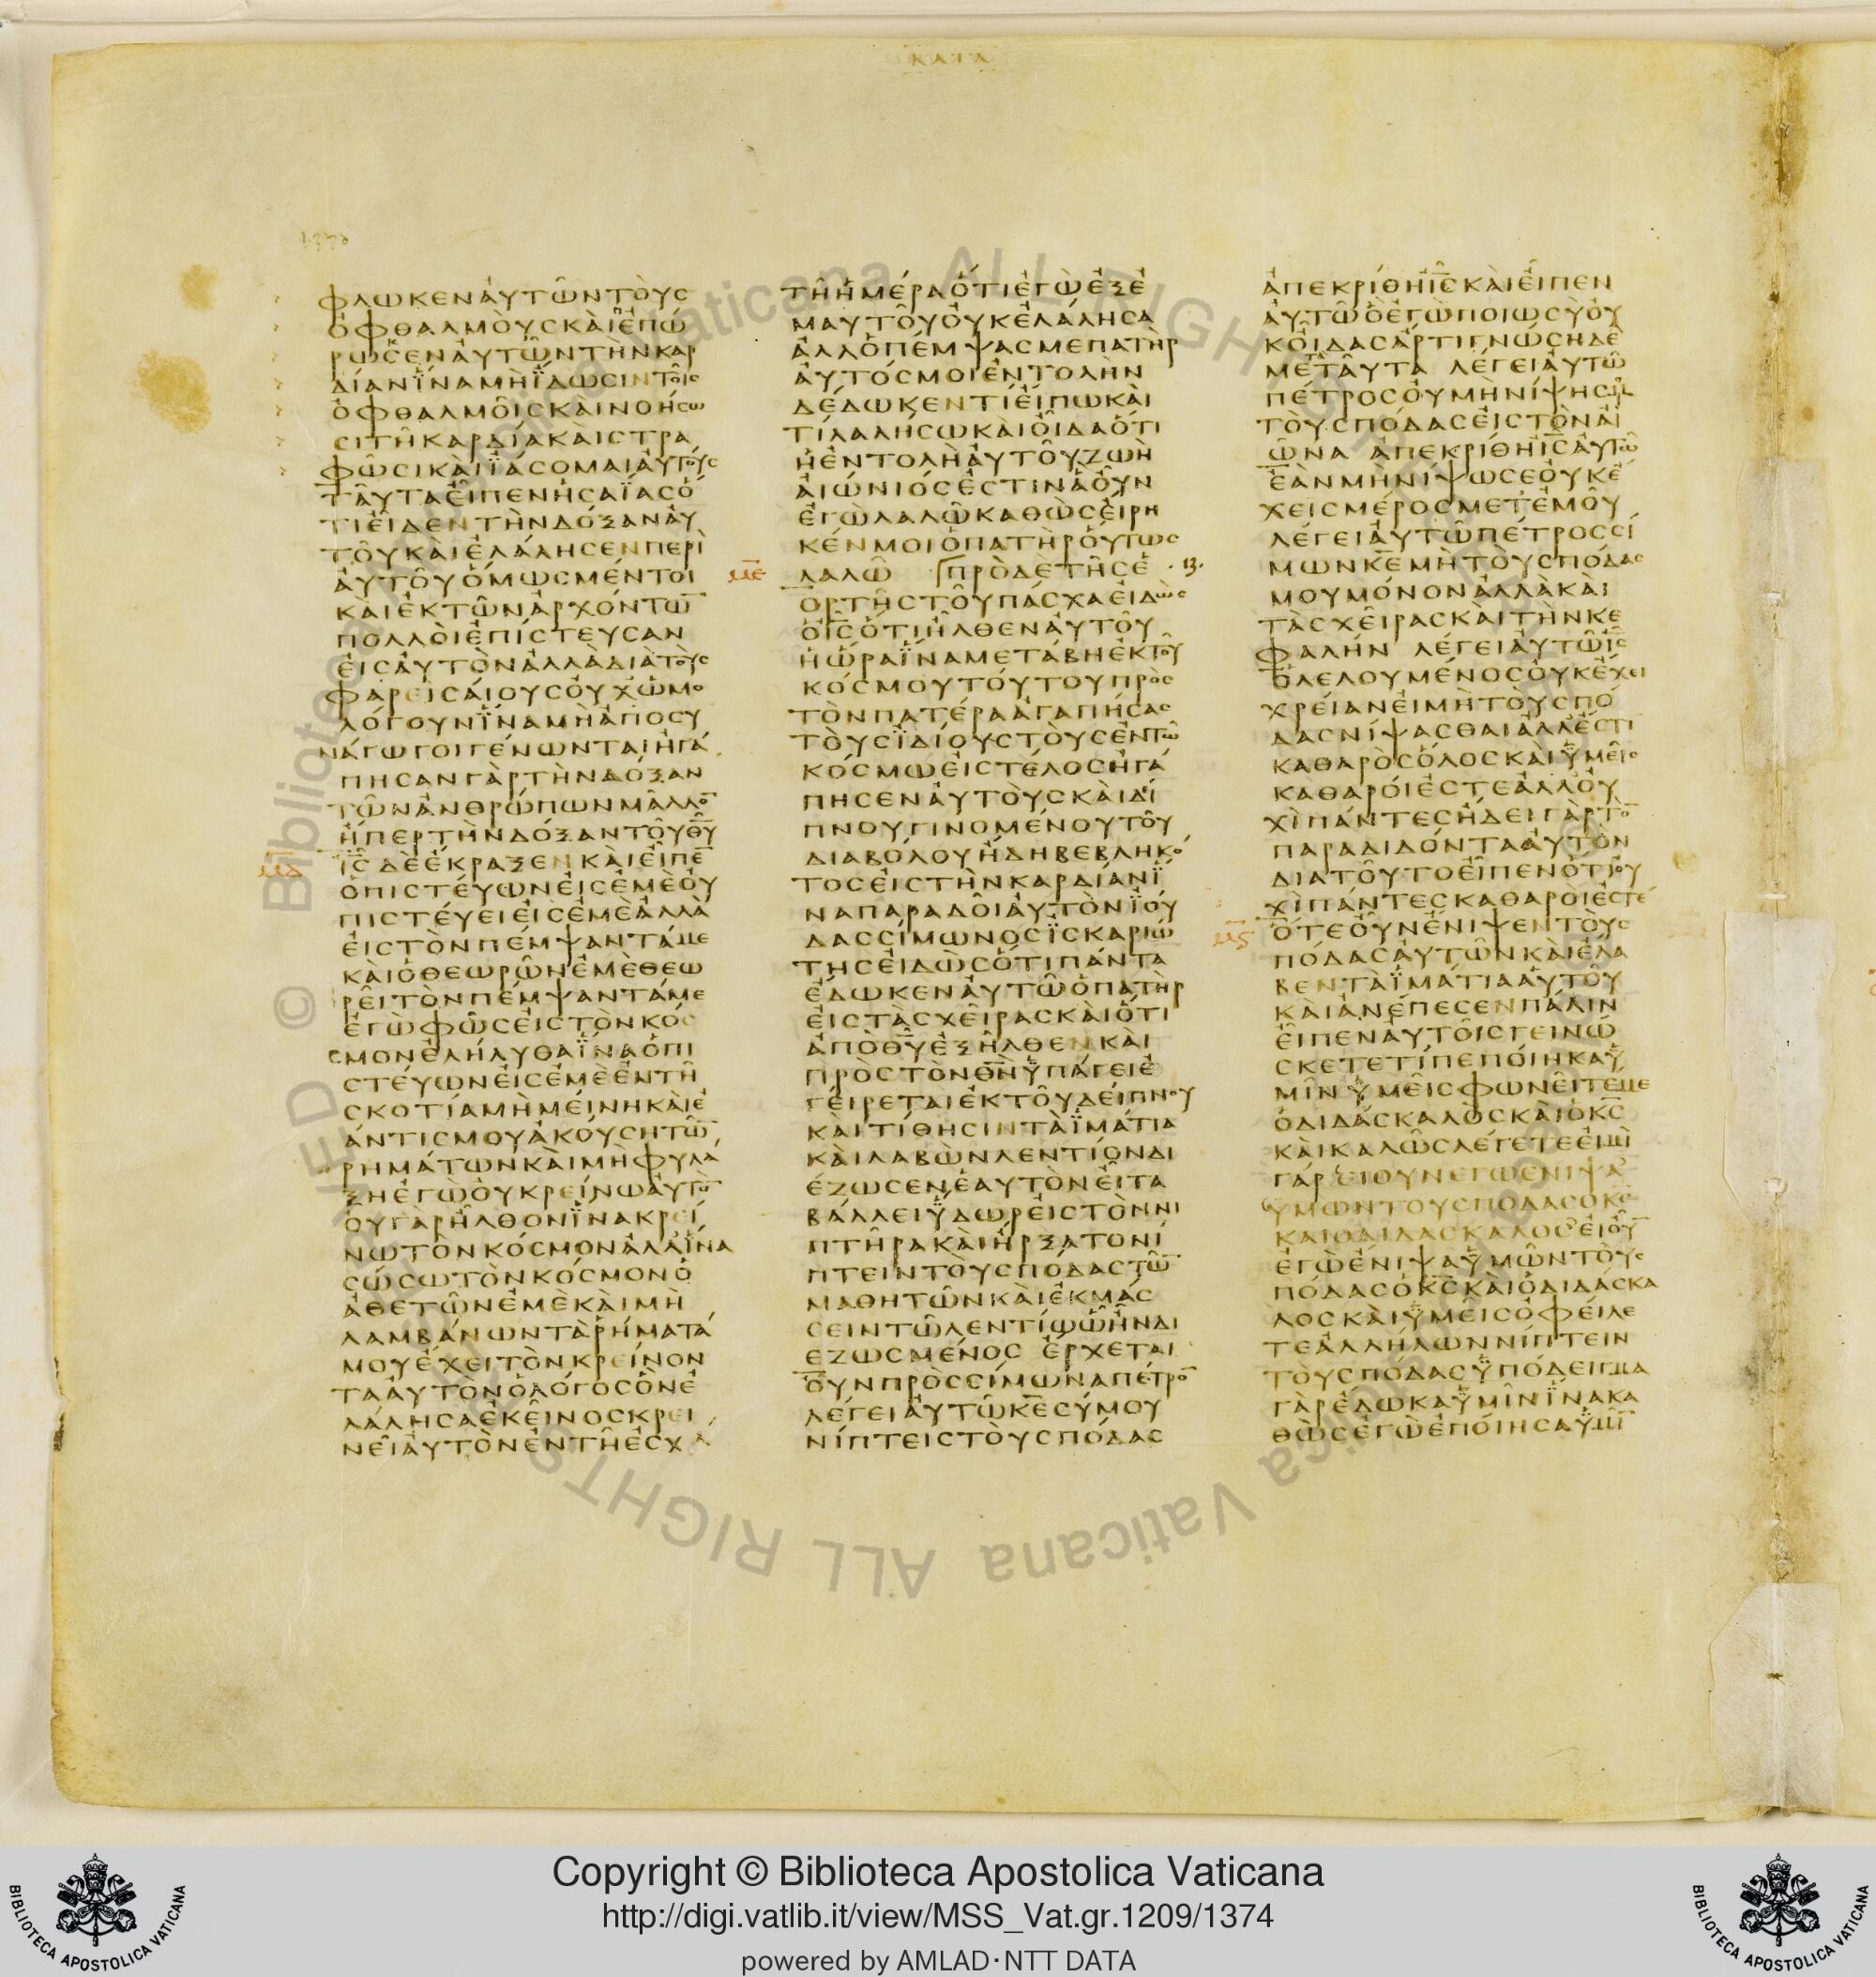 ΚΑΤΑ
φλωκεν αυτων τους
οφθαλμους και επω
ρωσεν αυτων την καρ
διαν ϊνα μη ϊδωσιν τοις
οφθαλμοις και νοησω
σι τη καρδια και στρα
φωσι και ϊασομαι αυτους
ταυτα ειπεν ησαϊας ο
τι ειδεν την δοξαν αυ
του και ελαλησεν περι
αυτου ομως μεντοι
και εκ των αρχοντω̅
πολλοι επιστευσαν
εις αυτον αλλα δια τους
φαρεισαιους ουχ ωμο
λογουν ϊνα μη αποσυ
ναγωγοι γενωνται ηγα
πησαν γαρ την δοξαν
των ανθρωπων μαλλο̅
ηπερ την δοξαν του θ̅υ̅
ι̅ς̅ δε εκραξεν και ειπε̅
ο πιστευων εις εμε ου
πιστευει εις εμε αλλα
εις τον πεμψαντα με
και ο θεωρων εμε θεω
ρει τον πεμψαντα με
εγω φως εις τον κοσ
μον εληλυθα ϊνα ο πι
στευων εις εμε εν τη
σκοτια μη μεινη και ε
αν τις μου ακουση τω̅
ρηματων και μη φυλα
ξη εγω ου κρεινω αυτο̅
ου γαρ ηλθον ϊνα κρει
νω τον κοσμον αλλ ϊνα
σωσω τον κοσμον ο
αθετων εμε και μη
λαμβανων τα ρηματα
μου εχει τον κρεινον
τα αυτον ο λογος ον ε
λαλησα εκεινος κρει
νει αυτον εν τη εσχα
τη ημερα οτι εγω εξ ε
μαυτου ουκ ελαλησα
αλλ ο πεμψας με πατηρ
αυτος μοι εντολην
δεδωκεν τι ειπω και
τι λαλησω και οιδα οτι
η εντολη αυτου ζωη
αιωνιος εστιν α ουν
εγω λαλω καθως ειρη
κεν μοι ο πατηρ ουτως
με̅ λαλω προ δε της ε · 13 ·
ορτης του πασχα ειδως
ο ι̅ς̅ οτι ηλθεν αυτου
η ωρα ϊνα μεταβη εκ του
κοσμου τουτου προς
τον πατερα αγαπησας
τους ϊδιους τους εν τω
κοσμω εις τελος ηγα
πησεν αυτους και δι
πνου γινομενου του
διαβολου ηδη βεβληκο
τος εις την καρδιαν ϊ
να παραδοι αυτον ϊου
δας σιμωνος ϊσκαριω
της ειδως οτι παντα
εδωκεν αυτω ο πατηρ
εις τας χειρας και οτι
απο θ̅υ̅ εξηλθεν και
προς τον θ̅ν̅ ϋπαγει ε
γειρεται εκ του δειπνου
και τιθησιν τα ϊματια
και λαβων λεντιον δι
εζωσεν εαυτον ειτα
βαλλει ϋδωρ εις τον νι
πτηρα και ηρξατο νι
πτειν τους ποδας τω̅
μαθητων και εκμας
σειν τω λεντιω ω ην δι
εζωσμενος ερχεται
ουν προς σιμωνα πετρο̅
λεγει αυτω κ̅ε̅ συ μου
νιπτεις τους ποδας
απεκριθη ι̅ς̅ και ειπεν
αυτω ο εγω ποιω συ ου
κ οιδας αρτι γνωση δε
μετα ταυτα λεγει αυτω
πετρος ου μη νιψης μου
τους ποδας εις τον αι
ωνα απεκριθη ι̅ς̅ αυτω
εαν μη νιψω σε ουκ ε
χεις μερος μετ εμου
λεγει αυτω πετρος σι
μων κ̅ε̅ μη τους ποδας
μου μονον αλλα και
τας χειρας και την κε
φαλην λεγει αυτω ι̅ς̅
ο λελουμενος ουκ εχει
χρειαν ει μη τους πο
δας νιψασθαι αλλ εστι
καθαρος ολος και ϋμεις
καθαροι εστε αλλ ου
χι παντες ηδει γαρ το̅
παραδιδοντα αυτον
δια τουτο ειπεν οτι ου
χι παντες καθαροι εστε
με̅ς οτε ουν ενιψεν τους
ποδας αυτων και ελα
βεν τα ϊματια αυτου
και ανεπεσεν παλιν
ειπεν αυτοις γεινω
σκετε τι πεποιηκα ϋ
μιν ϋμεις φωνειτε με
ο διδασκαλος και ο κ̅ς̅
και καλως λεγετε ειμι
γαρ ει ουν εγω ενιψα
ϋμων τους ποδας ο κ̅ς̅
και ο διδασκαλος ει ου̅
εγω ενιψα ϋμων τους
ποδας ο κ̅ς̅ και ο διδασκα
λος και ϋμεις οφειλε
τε αλληλων νιπτειν
τους ποδας ϋποδειγμα
γαρ εδωκα ϋμιν ϊνα κα
θως εγω εποιησα ϋμι̅
Copyright © Biblioteca Apostolica Vaticana
http://digi.vatlib.it/view/MSS_Vat.gr.1209/1374
powered by AMLAD·NTT DATA
BIBLIOTECA APOSTOLICA VATICANA
BIBLIOTECA APOSTOLICA VATICANA